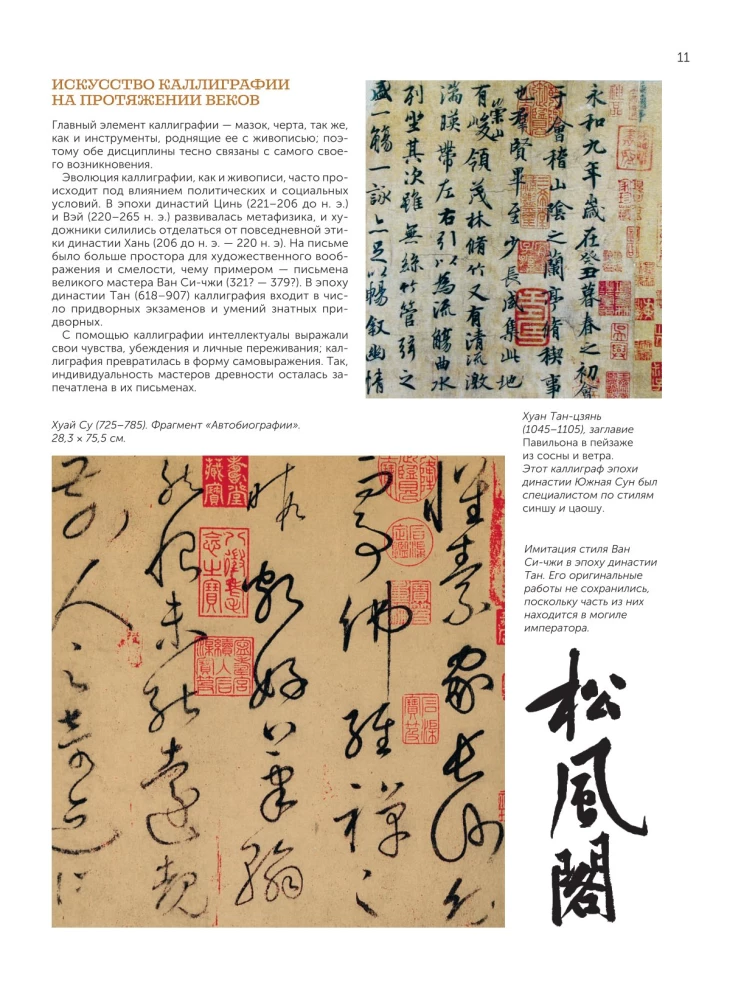 11
ИСКУССТВО КАЛЛИГРАФИИ
НА ПРОТЯЖЕНИИ ВЕКОВ
Главный элемент каллиграфии — мазок, черта, так же,
как и инструменты, роднящие ее с живописью; поэ-
тому обе дисциплины тесно связаны с самого свое-
го возникновения.
Эволюция каллиграфии, как и живописи, часто про-
исходит под влиянием политических и социальных
условий. В эпохи династий Цинь (221–206 до н. э.)
и Вэй (220–265 н. э.) развивалась метафизика, и ху-
дожники силились отделаться от повседневной эти-
ки династии Хань (206 до н. э. — 220 н. э). На письме
было больше простора для художественного вооб-
ражения и смелости, чему примером — письмена
великого мастера Ван Си-чжи (321? — 379?). В эпоху
династии Тан (618–907) каллиграфия входит в чис-
ло придворных экзаменов и умений знатных при-
дворных.
С помощью каллиграфии интеллектуалы выражали
свои чувства, убеждения и личные переживания; кал-
лиграфия превратилась в форму самовыражения. Так,
индивидуальность мастеров древности осталась за-
печатлена в их письменах.
永和九年歲在癸丑暮春之初會
于會稽山陰之蘭亭脩稧事
也羣賢畢至少長咸集此地
有崇山峻領茂林脩竹又有清流激
湍暎帶左右引以為流觴曲水
列坐其次雖無絲竹管弦之
盛一觴一詠亦足以暢叙幽情
Хуай Су (725–785). Фрагмент «Автобиографии».
28,3 × 75,5 см.
Хуан Тан-цзянь
(1045–1105), заглавие
Павильона в пейзаже
из сосны и ветра.
Этот каллиграф эпохи
династии Южная Сун был
специалистом по стилям
синшу и цаошу.
Имитация стиля Ван
Си-чжи в эпоху династии
Тан. Его оригинальные
работы не сохранились,
поскольку часть из них
находится в могиле
императора.
懷素家長沙幼
而事佛經禪之
暇頗好筆翰
然恨未能遠覩
前人之奇迹
松風閣